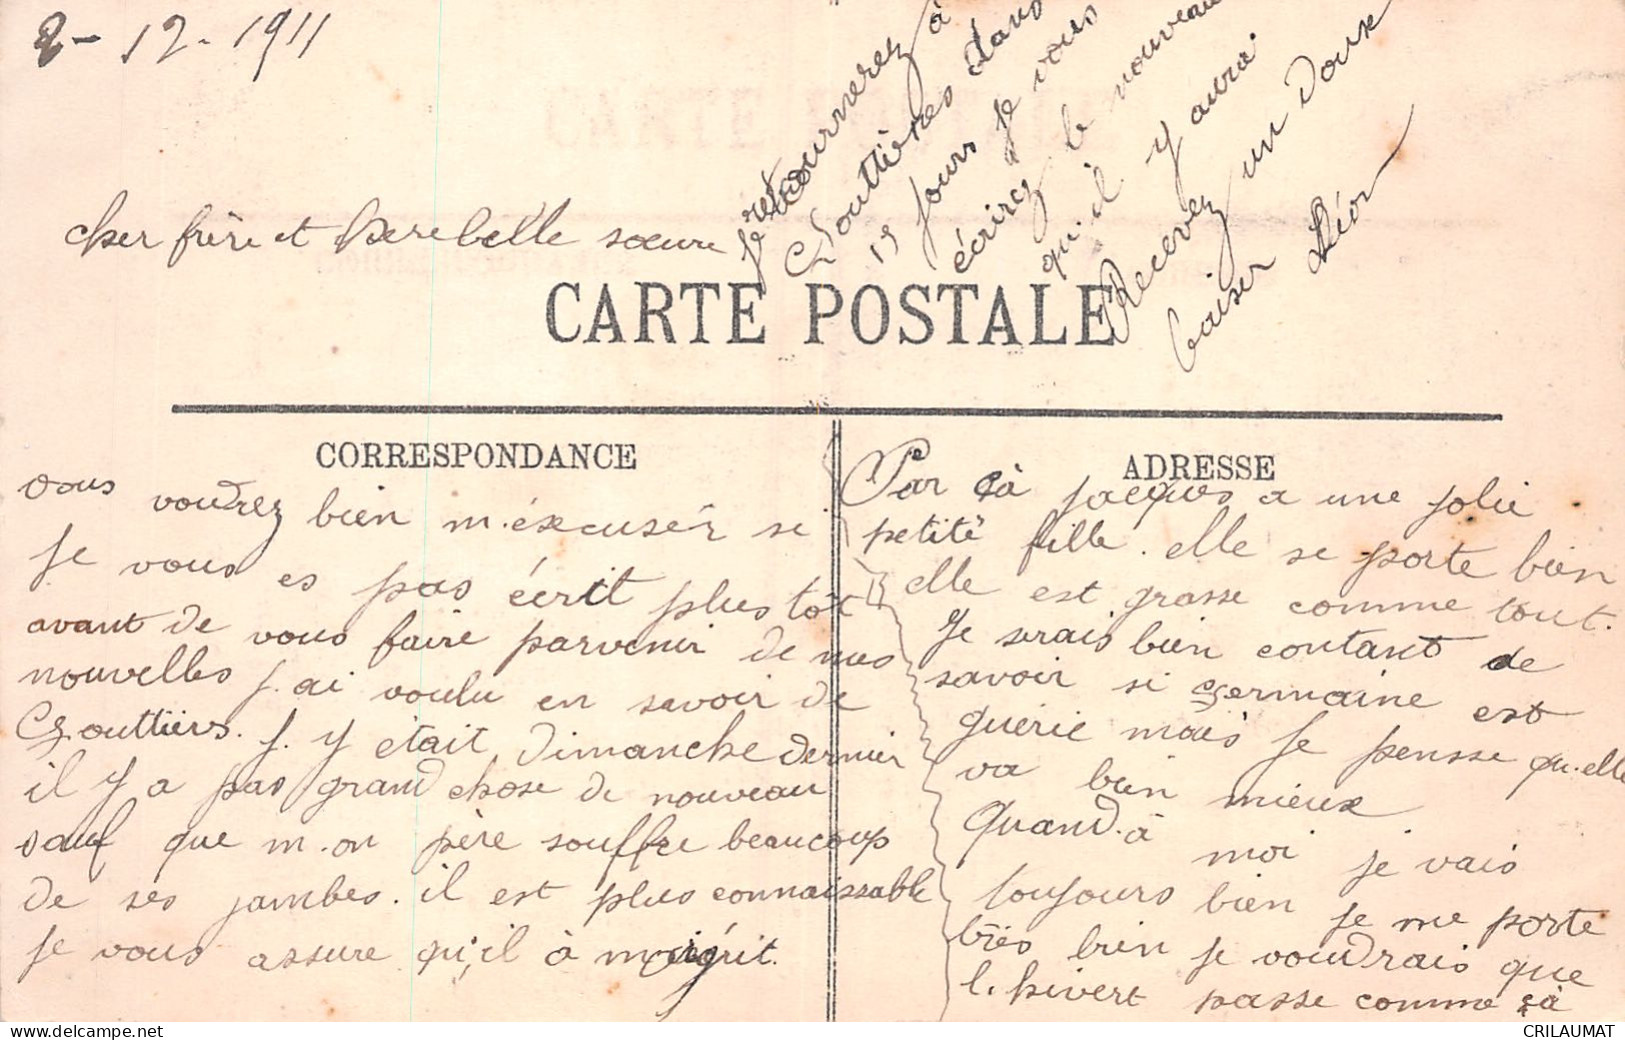 2-12-1911
cher frère et chere belle sœure
CARTE POSTALE
CORRESPONDANCE
vous voudrez bien m.éxcusér si
je vous es pas écrit plus tôt
avant de vous faire parvenir de mes
nouvelles j.ai voulu en savoir de
Chouttières. j.y était dimanche dernier
il y a pas grand chose de nouveau
sauf que m.on père souffre beaucoup
de ses jambes. il est plus connaissable
je vous assure qu'il à maigrit.
ADRESSE
Par çà jacques a une jolie
petite fille. elle se porte bien
elle est grasse comme tout.
je serais bien contant de
savoir si Germaine est
guérie mais je pensse qu.elle
va bien mieux.
Quand.à moi je vais
toujours bien je me porte
très bien je voudrais que
l.hivert passe comme çà
je retournerez à
Chouttières dans
15 jours je vous
écrirez le nouveau
qu.il y aura.
Recevez un doux
baiser Léon
CRILAUMAT